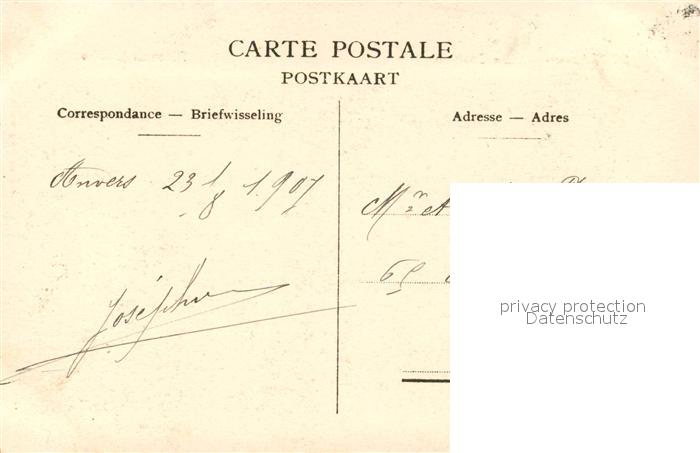 CARTE POSTALE
POSTKAART
Correspondance — Briefwisseling
Anvers 23/8 1.907
Joséphine
Adresse — Adres
Mr A
65
privacy protection
Datenschutz